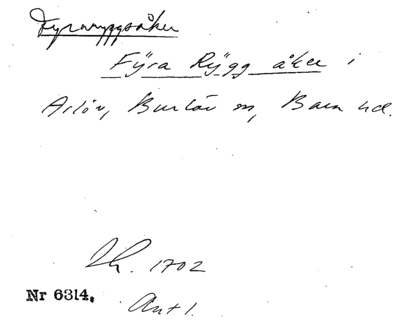 Fyraryggsåker
Fÿra Rÿgg åker i
Arlöv, Burlöv sn, Bara hd.
Lh. 1702
Nr 6314.
Ant 1.